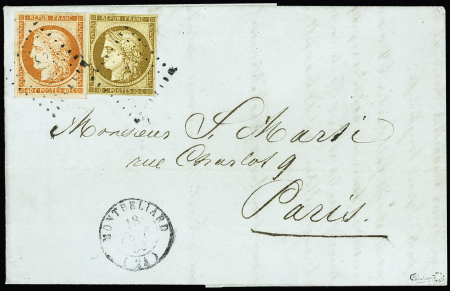 REPUB. FRANC. REPUB. FRANC.
40 POSTES 40 C 10 C POSTES 10 C
Monsieur S. Marti
rue Charlot 9
Paris.
MONTBELIARD
18
(24)